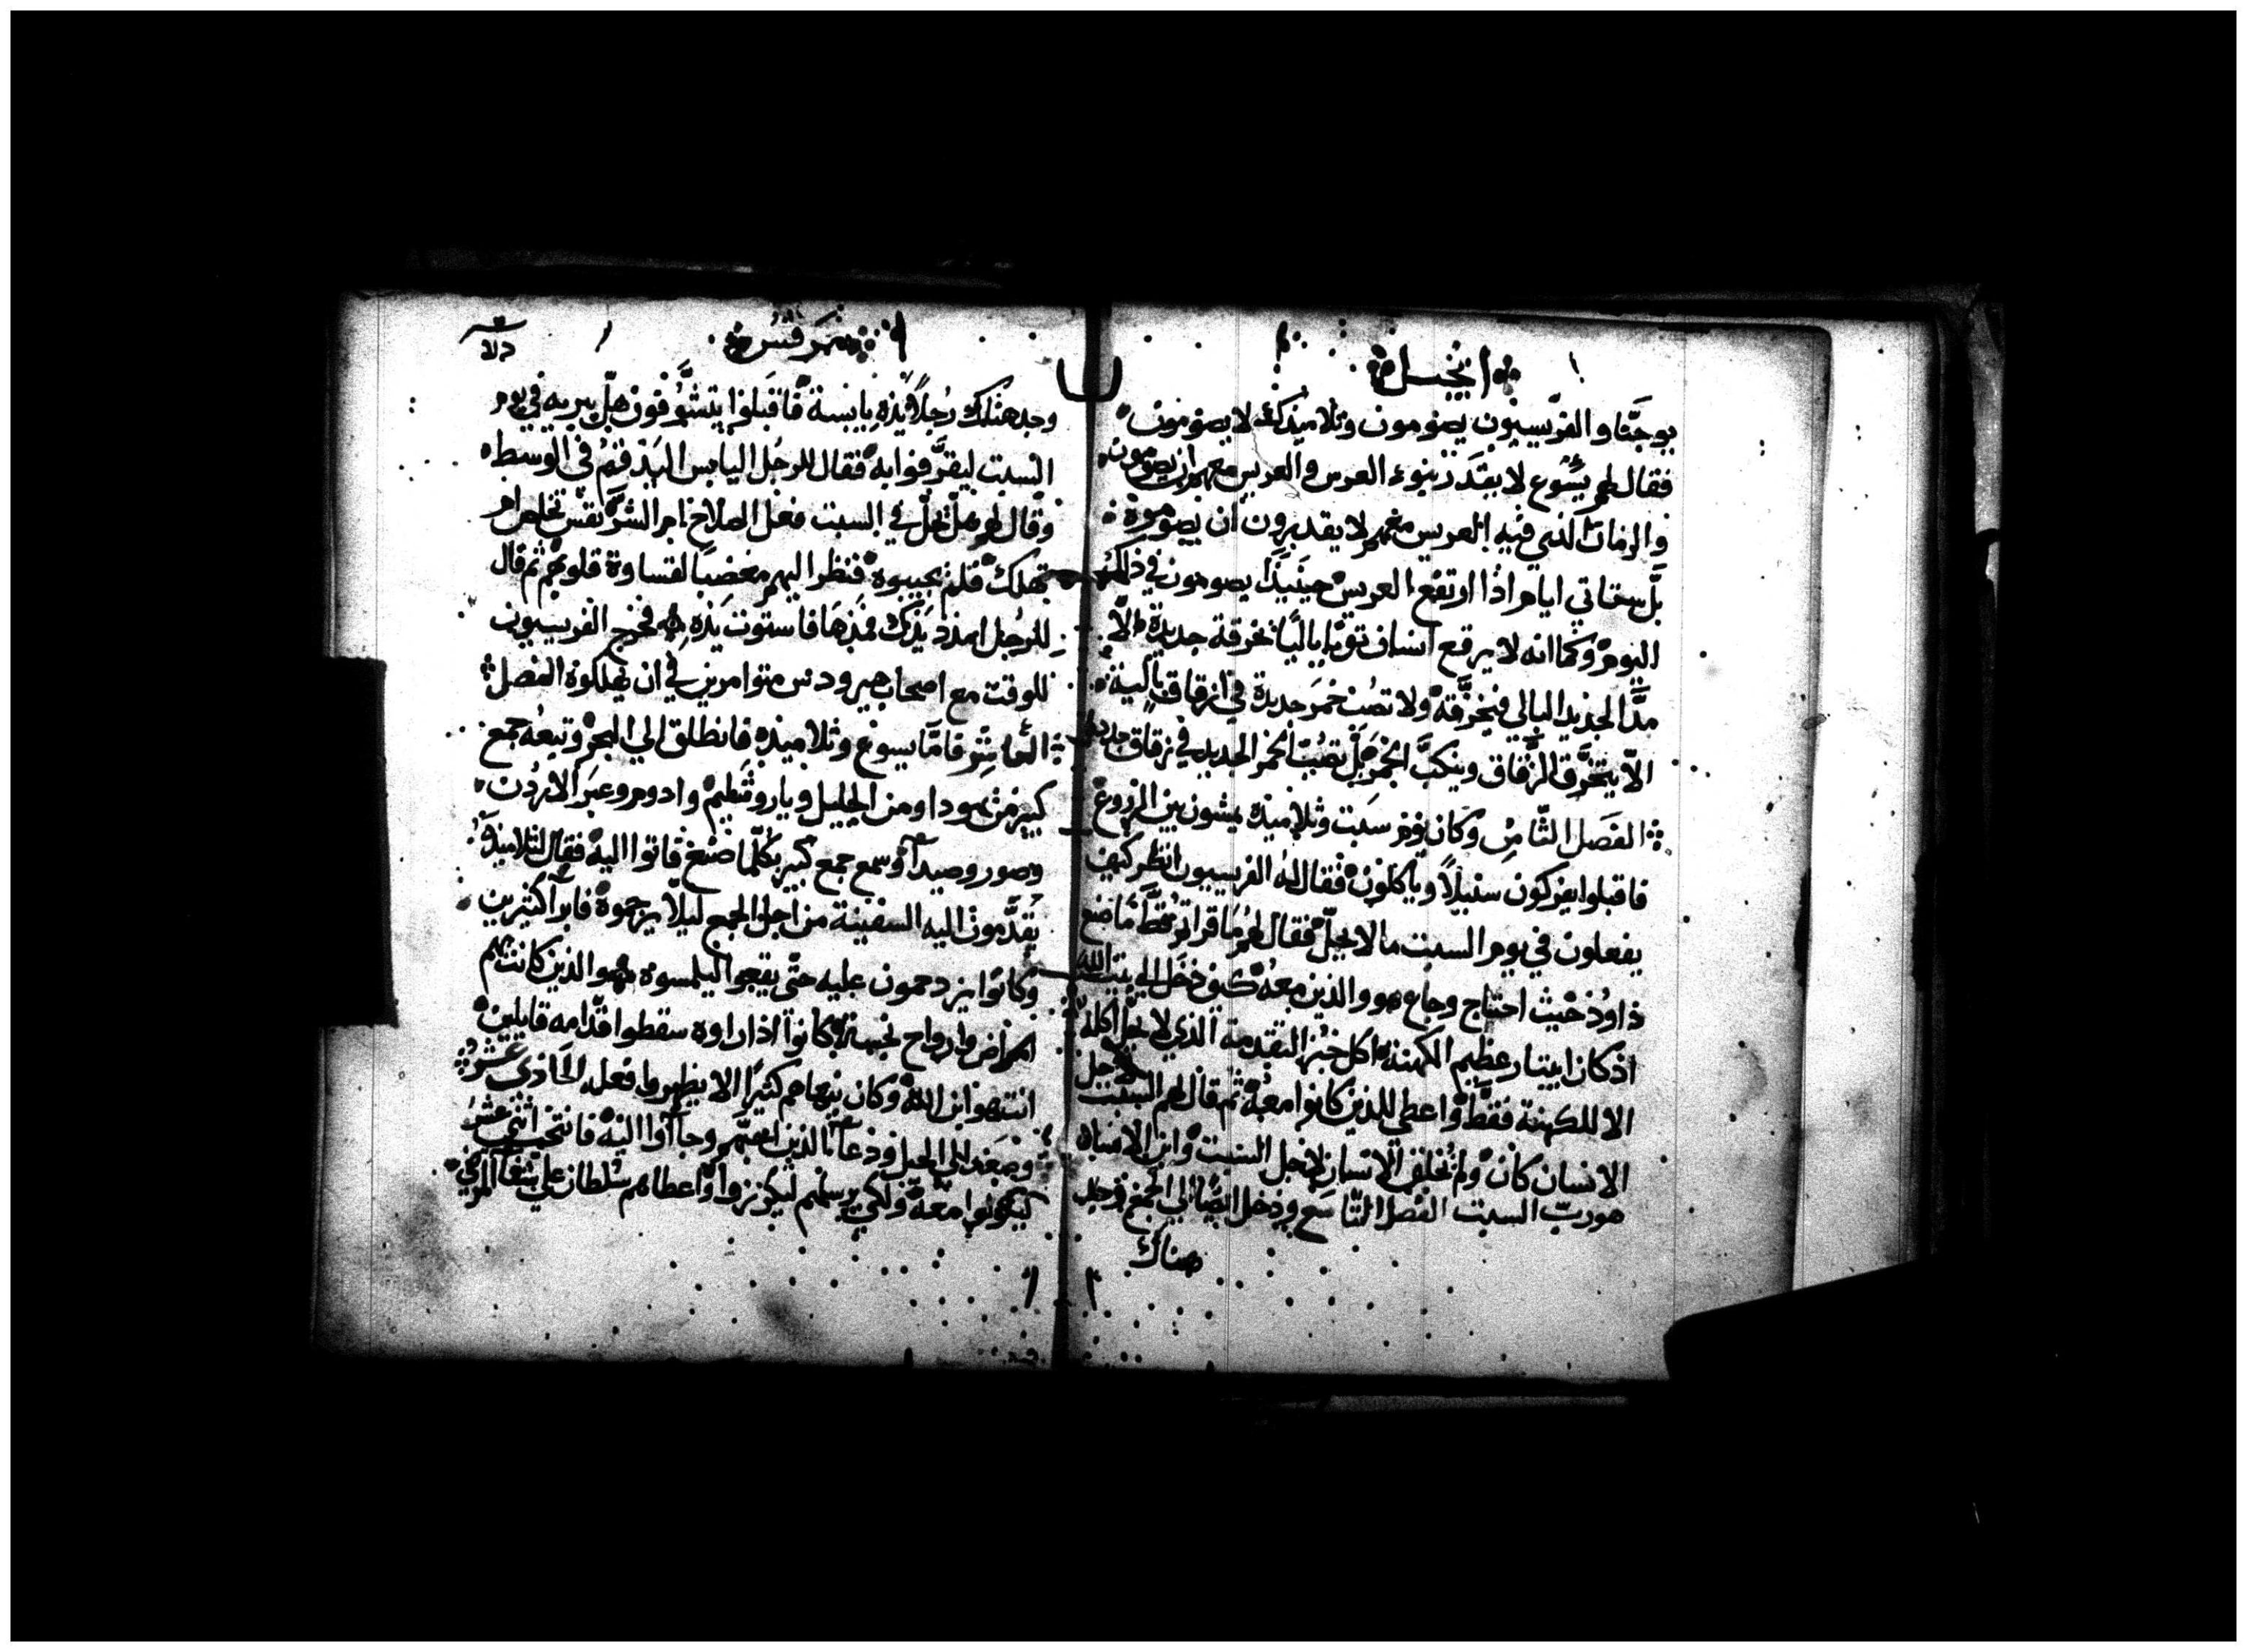 انجيل
يوحنا والفريسيون يصومون وتلاميذك لا يصومون
فقال لهم يسوع لا يقدر بنوء العرس والعريس معهم ان يصومون
والزمان الذي فيه العريس معهم لا يقدرون ان يصوموه
بل ستاتي ايام اذا ارتفع العريس حينيذ يصومون في ذلك
اليوم وكما انه لا يرقع انسان ثوبا باليا بخرقة جديدة والا
مد الجديد البالي فيخرقه ولا تصب خمر جديدة في ازقاق بالية
الا يتخرق الزقاق وينكب الخمر بل تصب الخمر الجديد في زقاق جدد
الفصل الثامن وكان يوم سبت وتلاميذه يمشون بين الزروع
فاقبلوا يفركون سنبلا وياكلون فقال له الفريسيون انظر كيف
يفعلون في يوم السبت ما لا يحل فقال لهم ما قراتم قط ما صنع
داود حيث احتاج وجاع هو والذين معه كيف دخل الي بيت الله
اذ كان ابيتار عظيم الكهنة اكل خبز التقدمة الذي لا يحل اكله
الا للكهنة فقط واعطي للذين كانوا معه ثم قال لهم السبت لاجل
الانسان كان ولم يخلق الانسان لاجل السبت وابن الانسان
هو رب السبت الفصل التاسع ودخل ايضا الي المجمع فوجد
هناك
مرقس
وجد هناك رجلا يده يابسة فاقبلوا يتشوفون هل يبريه في يوم
السبت ليقرفوا به فقال للرجل اليابس اليد قم في الوسط
وقال لهم هل يحل في السبت فعل الصلاح ام الشر نفس تخلص ام
تهلك فلم يجيبوه فنظر اليهم مغضبا لقساوة قلوبهم ثم قال
للرجل امدد يدك فمدها فاستوت يده فخرج الفريسيون
للوقت مع اصحاب هيرودس متوامرين في ان يهلكوه الفصل
العاشر فاما يسوع وتلاميذه فانطلق الي البحر وتبعه جمع
كبير من يهودا ومن الجليل وياروشليم وادوم وعبر الاردن
وصور وصيدا وسمع جمع كبير بكلما صنع فاتوا اليه فقال لتلاميذه
يقدمون اليه السفينة من اجل الجمع ليلا يزحموه فابرا كثيرين
وكانوا يزدحمون عليه حتي يقعوا ليلمسوه هو الذين كانت بهم
امراض وارواح نجسة كانوا اذا راوه سقطوا قدامه قايلين
انت هو ابن الله وكان ينهاهم كثيرا الا يظهروا فعله الحادي عشر
وصعد الي الجبل ودعا الذين احبهم وجاوا اليه فانتخب اثني عشر
ليكونوا معه ولكي يرسلهم ليكرزوا واعطاهم سلطان علي شفا المرضي